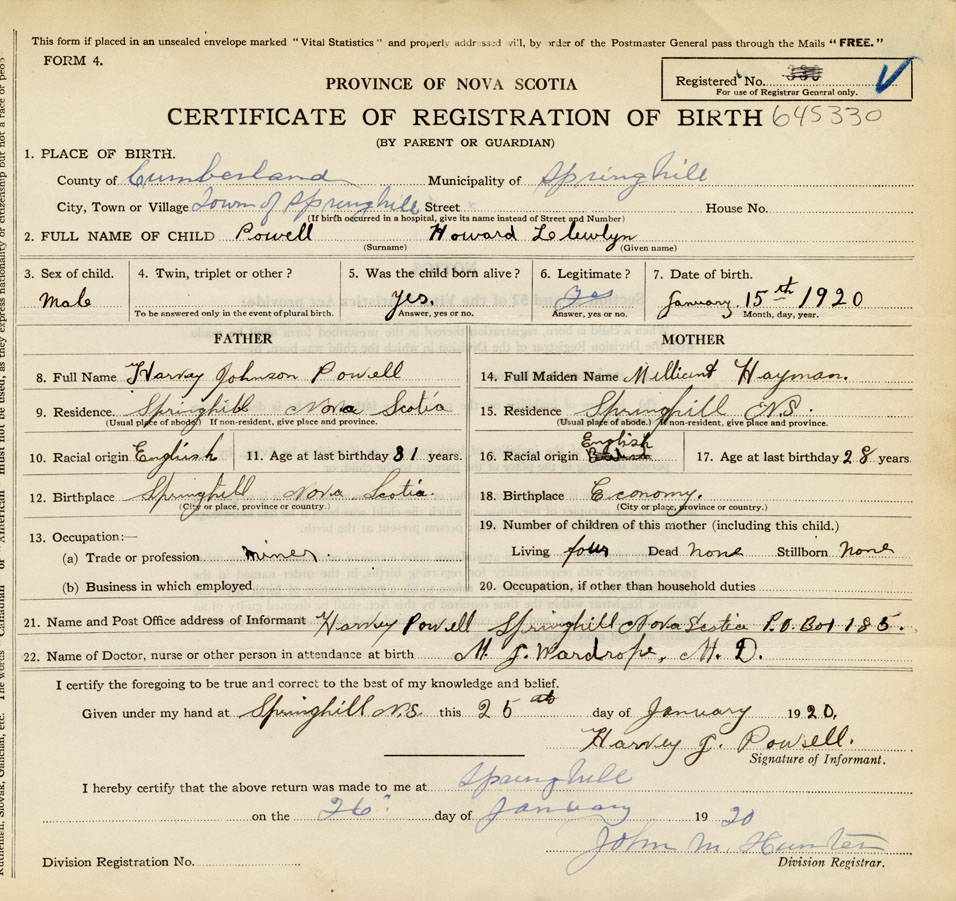 This form if placed in an unsealed envelope marked "Vital Statistics" and properly addressed will, by order of the Postmaster General pass through the Mails "FREE."
FORM 4.
Registered No. 330
For use of Registrar General only.
PROVINCE OF NOVA SCOTIA
CERTIFICATE OF REGISTRATION OF BIRTH 645330
(BY PARENT OR GUARDIAN)
1. PLACE OF BIRTH.
County of Cumberland Municipality of Springhill
City, Town or Village Town of Springhill Street House No.
(If birth occurred in a hospital, give its name instead of Street and Number)
2. FULL NAME OF CHILD Powell Howard Llewlyn
(Surname) (Given name)
3. Sex of child. 4. Twin, triplet or other? 5. Was the child born alive? 6. Legitimate? 7. Date of birth.
Male yes. Yes January 15th 1920
To be answered only in the event of plural birth. Answer, yes or no. Answer, yes or no. Month, day, year.
FATHER MOTHER
8. Full Name Harvey Johnson Powell 14. Full Maiden Name Millicent Hayman.
9. Residence. Springhill Nova Scotia 15. Residence Springhill N.S.
(Usual place of abode.) If non-resident, give place and province. (Usual place of abode.) If non-resident, give place and province.
English
10. Racial origin English 11. Age at last birthday 31 years. 16. Racial origin 17. Age at last birthday 28 years.
12. Birthplace Springhill Nova Scotia. 18. Birthplace Economy.
(City or place, province or country.) (City or place, province or country.)
13. Occupation:— 19. Number of children of this mother (including this child.)
(a) Trade or profession miner. Living four Dead None Stillborn None
(b) Business in which employed 20. Occupation, if other than household duties
21. Name and Post Office address of Informant Harvey Powell Springhill Nova Scotia P.O. Box 185.
22. Name of Doctor, nurse or other person in attendance at birth M. J. Wardrope, M. D.
I certify the foregoing to be true and correct to the best of my knowledge and belief.
Given under my hand at Springhill N.S. this 25 day of January 1920.
Harvey J. Powell.
Signature of Informant.
I hereby certify that the above return was made to me at Springhill
on the 26" day of January 1920
John M. Hunter
Division Registration No. Division Registrar.